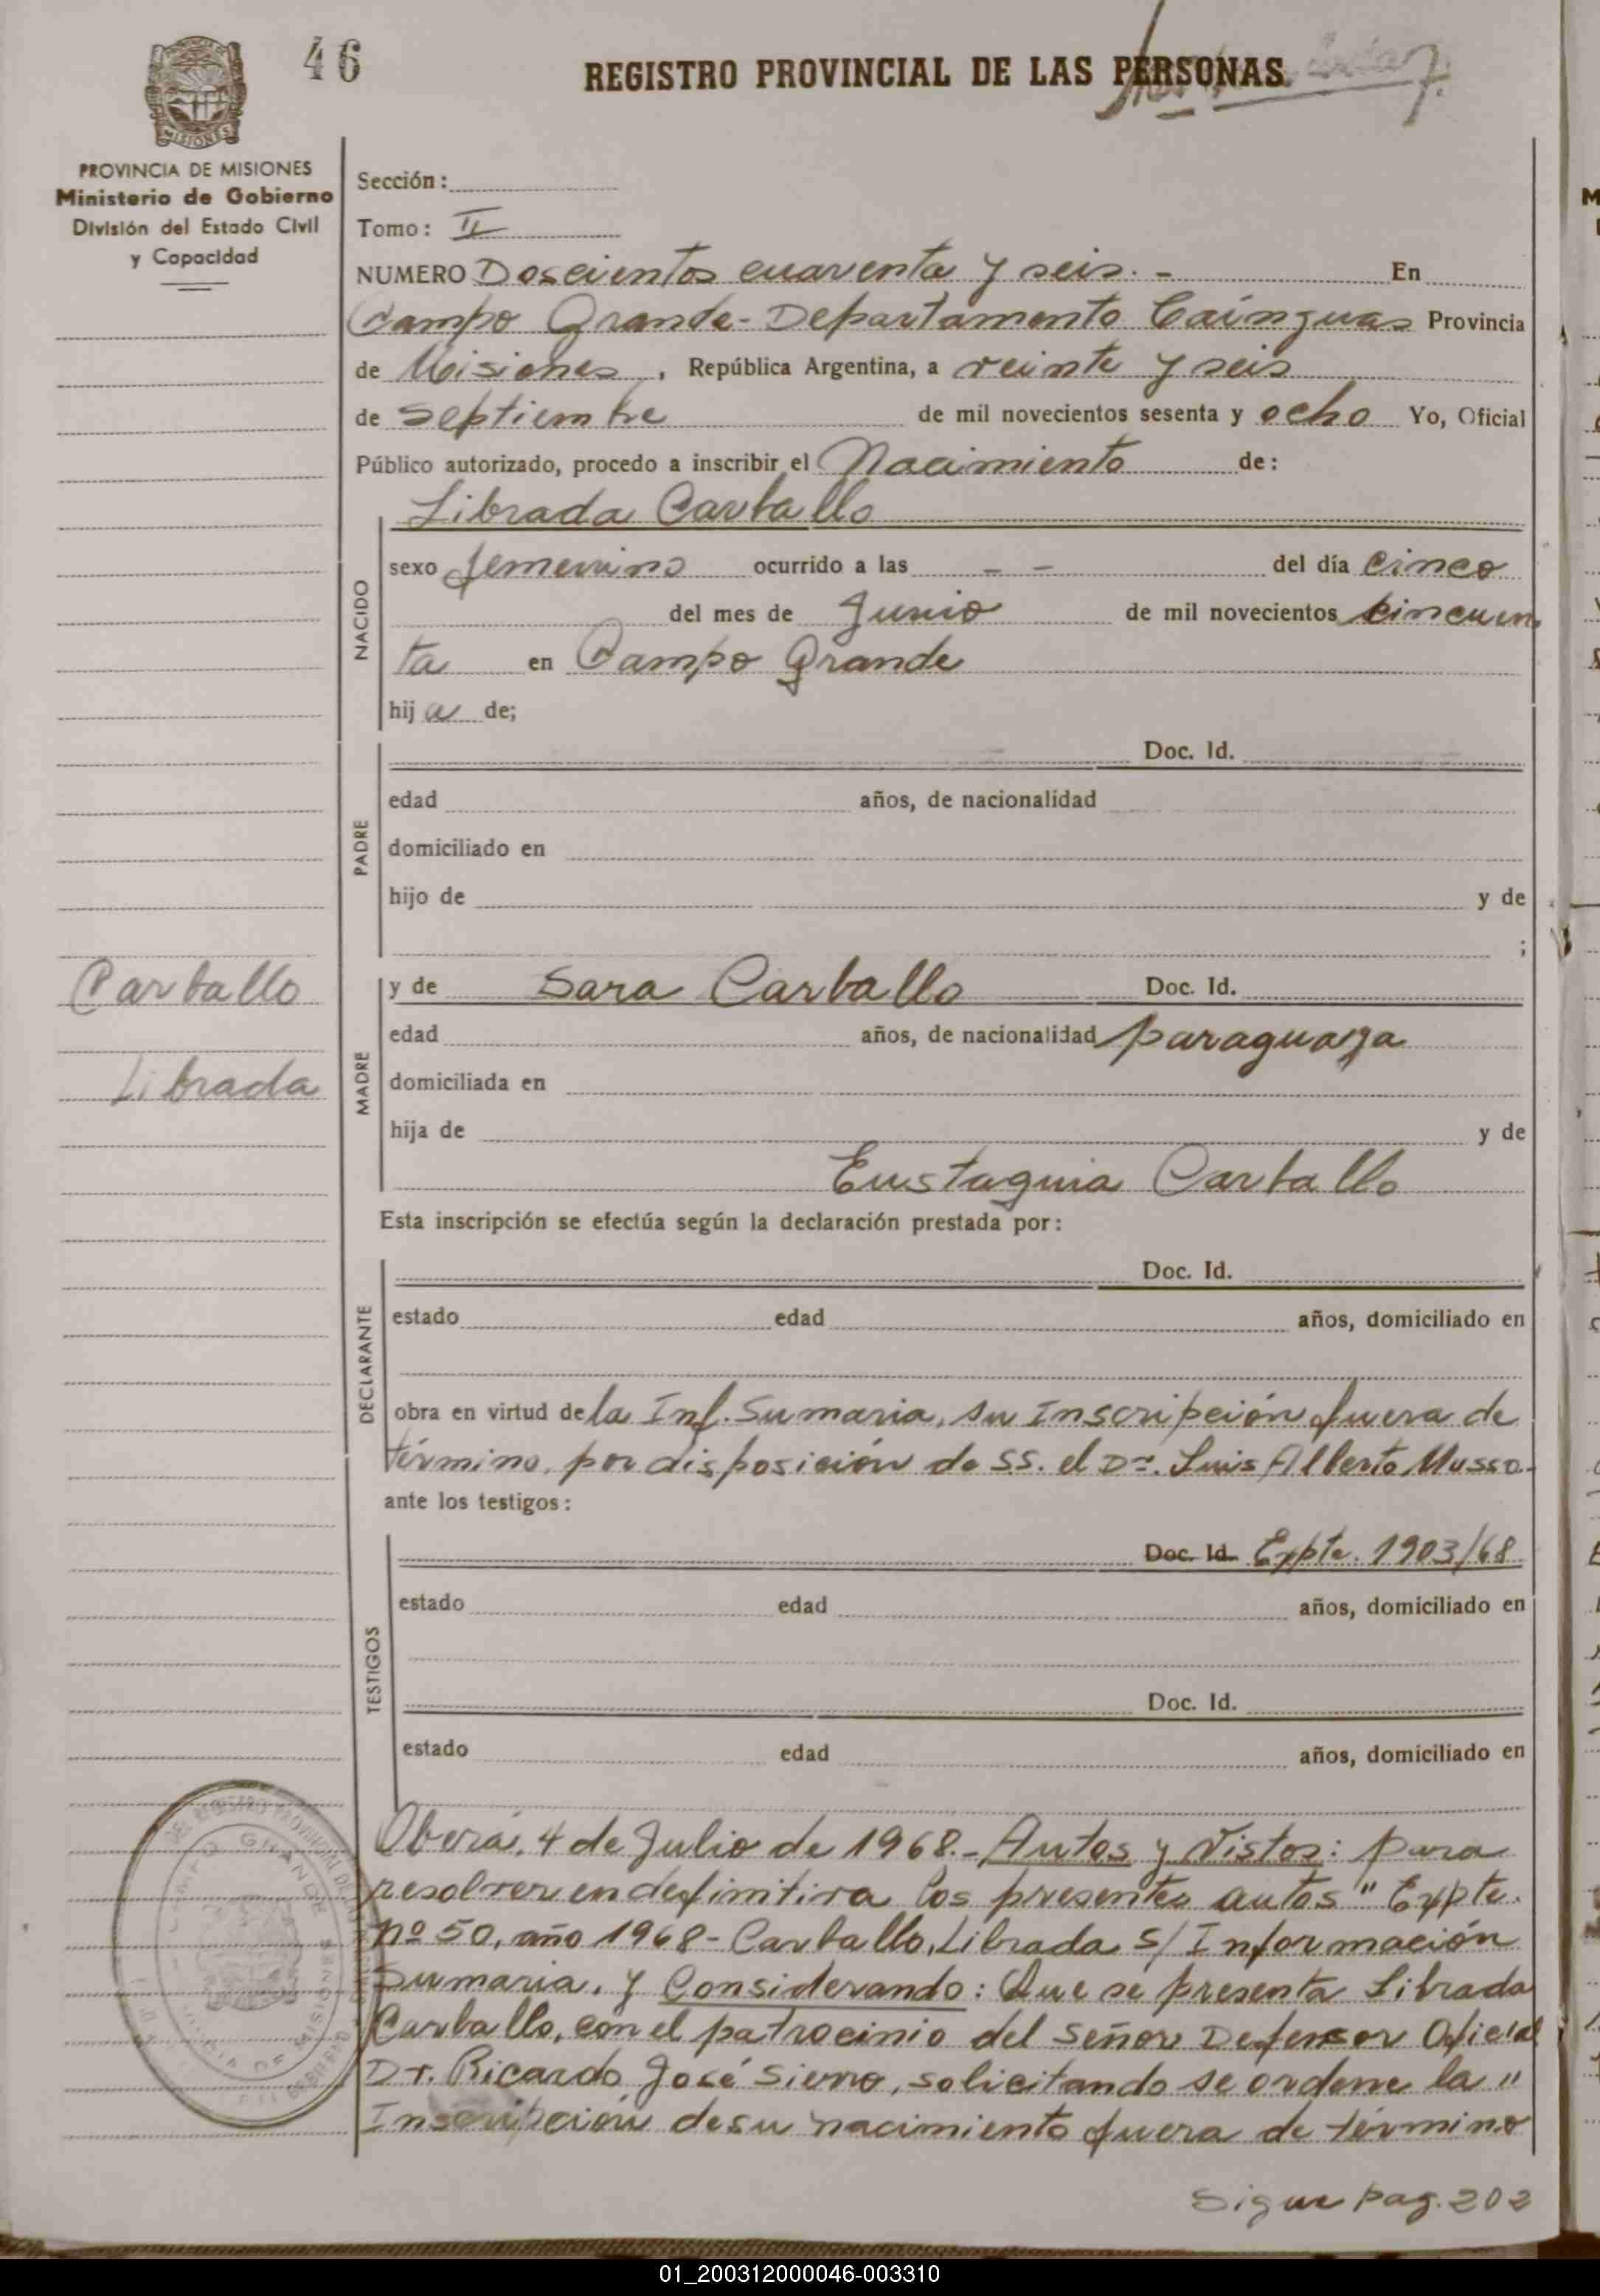 46
REGISTRO PROVINCIAL DE LAS PERSONAS
MISIONES
PROVINCIA DE MISIONES
Ministerio de Gobierno
División del Estado Civil
y Capacidad
Sección:
Tomo: II
NUMERO Doscientos cuarenta y seis. - En
Campo Grande - Departamento Cainguas Provincia
de Misiones, República Argentina, a veinte y seis
de Septiembre de mil novecientos sesenta y ocho Yo, Oficial
Público autorizado, procedo a inscribir el Nacimiento de:
Librada Carballo
NACIDO
sexo femenino ocurrido a las - - del día cinco
del mes de Junio de mil novecientos cincuen
ta en Campo Grande
hija de;
PADRE
Doc. Id.
edad años, de nacionalidad
domiciliado en
hijo de y de
;
Carballo
Librada
MADRE
y de Sara Carballo Doc. Id.
edad años, de nacionalidad paraguaya
domiciliada en
hija de y de
Eustaquia Carballo
Esta inscripción se efectúa según la declaración prestada por:
DECLARANTE
Doc. Id.
estado edad años, domiciliado en
obra en virtud de la Inf. Sumaria, su Inscripción fuera de
término, por disposición de SS. el Dr. Luis Alberto Musso.
ante los testigos:
TESTIGOS
Doc. Id. Expte. 1903/68
estado edad años, domiciliado en
Doc. Id.
estado edad años, domiciliado en
Oberá, 4 de Julio de 1968.- Autos y Vistos: para
resolver en definitiva los presentes autos " Expte.
nº 50, año 1968 - Carballo, Librada S/ Información
Sumaria. Y Considerando: Que se presenta Librada
Carballo, con el patrocinio del Señor Defensor Oficial
Dr. Ricardo José Sierro, solicitando se ordene la "
Inscripción de su nacimiento fuera de término
Sigue pag. 202
01_200312000046-003310